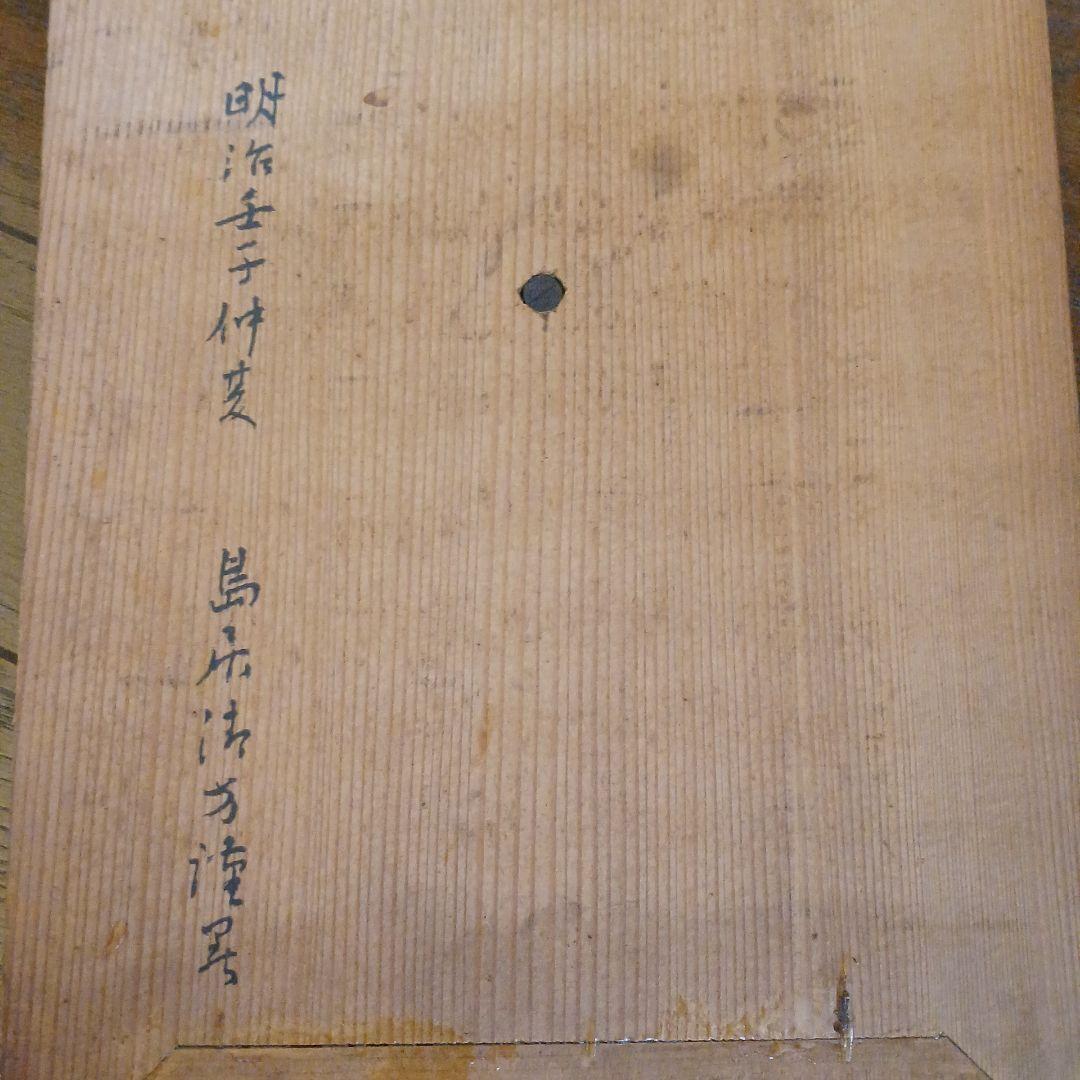 明治壬子仲夏 島居清方謹署